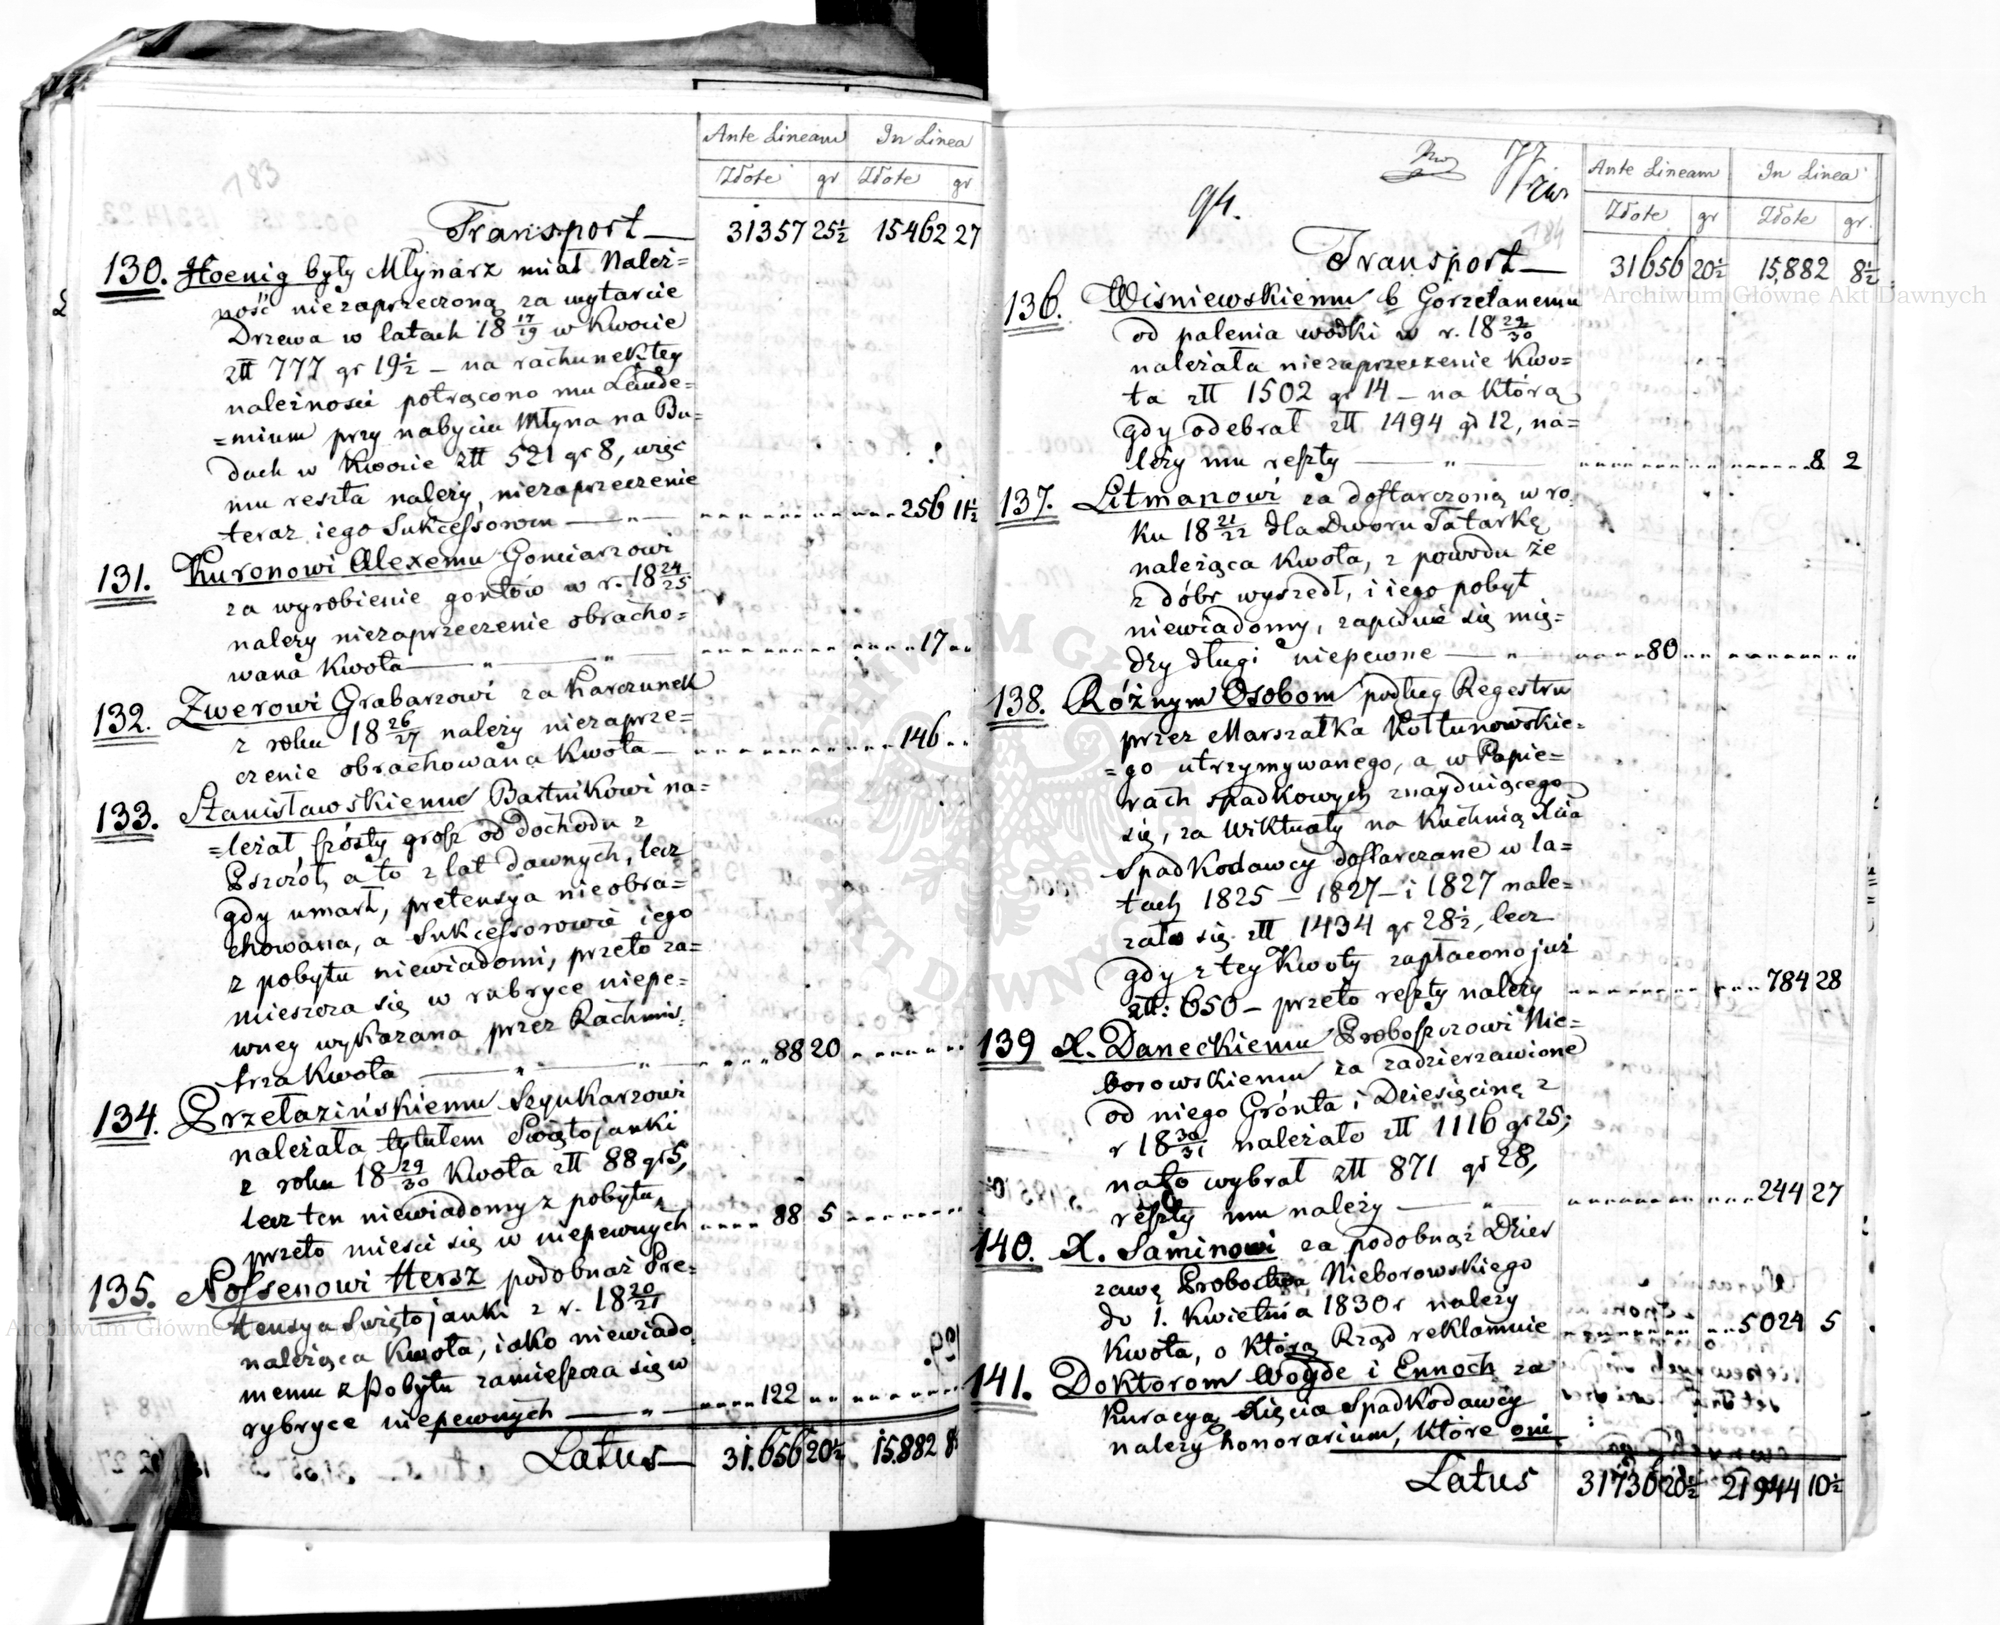 183
Ante Lineam In Linea
Złote gr Złote gr
Transport 31357 25½ 15462 27
130. Hoenig były Młynarz miał Należ=
ność niezaprzeczoną za wytarcie
Drzewa w latach 18 17/19 w Kwocie
złł 777 gr 19½ – na rachunek tey
należności potrącono mu Laude=
=mium przy nabyciu Młyna na Bu=
dach w Kwocie złł 521 gr 8, więc
mu reszta należy niezaprzeczenie
teraz iego Sukcessorom 256 11½
131. Kuronowi Alexemu Gonciarzowi
za wyrobienie gontów w r. 18 24/25
należy niezaprzeczenie obracho=
wana Kwota 17
132. Zwerowi Grabarzowi za Karczunek
z roku 18 26/27 należy niezaprze=
czenie obrachowana Kwota 146
133. Stanisławskiemu Bartnikowi na=
=leżał szósty grosz od dochodu z
Pszczół, a to z lat dawnych, lecz
gdy umarł, pretensya nieobra=
chowana, a Sukcessorowie iego
z pobytu niewiadomi, przeto za=
mieszcza się w rubryce niepe=
wney wykazana przez Rachmis=
trza Kwota 88 20
134. Przełazińskiemu Szynkarzowi
należała tytułem Swiętojanki
z roku 18 29/30 Kwota złł 88 gr 5,
lecz ten niewiadomy z pobytu,
przeto mieści się w niepewnych 88 5
135. Nossenowi Hersz podobnaż Pre=
tensya Swiętojanki z r. 18 20/21
należąca Kwota, iako niewiado
memu z Pobytu zamieszcza się w
rybryce niepewnych 122
Latus 31.656 20½ 15.882 8½
94.
184
Ante Lineam In Linea
Złote gr Złote gr.
Transport 31656 20½ 15,882 8½
136. Wiśniewskiemu b Gorzelanemu
od palenia wódki w r. 18 29/30
należała niezaprzeczenie Kwo=
ta złł 1502 gr 14 – na którą
gdy odebrał złł 1494 gr 12, na=
leży mu reszty 8 2
137. Litmanowi za dostarczoną w ro
ku 18 21/22 dla Dworu Tatarkę
należąca Kwota, z powodu że
z dóbr wyszedł, i iego pobyt
niewiadomy, zapisuie się mię=
dzy długi niepewne 80
138. Różnym Osobom podług Regestru
przez Marszałka Kołtunowskie=
=go utrzymywanego, a w Papie=
rach spadkowych znayduiącego
się, za Wiktuały na Kuchnią Xcia
Spadkodawcy dostarczane w la=
tach 1825 – 1827 – i 1827 nale=
żało się złł 1434 gr 28½, lecz
gdy z tey Kwoty zapłacono już
złł: 650 – przeto reszty należy 784 28
139 X. Daneckiemu Proboszczowi Nie=
borowskiemu za zadzierzawione
od niego Grónta i Dziesięcinę z
r 18 30/31 należało złł 1116 gr 25;
na to wybrał złł 871 gr 28,
reszty mu należy 244 27
140. X. Saminowi za podobnąż Dzier
zawę Probostwa Nieborowskiego
do 1. Kwietnia 1830 r należy
Kwota, o którą Rząd reklamuie 5024 5
141. Doktorom Woyde i Ennoch za
Kuracyą Xięcia Spadkodawcy
należy honorarium, które oni
Latus 31736 20½ 21944 10½
Archiwum Główne Akt Dawnych
Archiwum Główne Akt Dawnych
ARCHIWUM GŁÓWNE AKT DAWNYCH